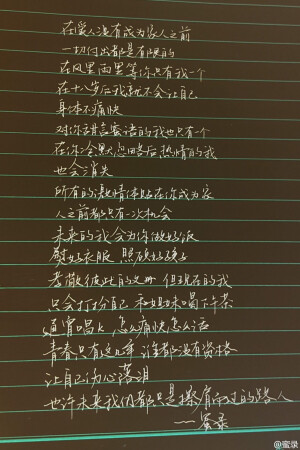 在爱人没有成为家人之前
一切付出都是有限的
在风里雨里等你只有我一个
在十八岁后我就不会让自己
身体不痛快
对你甜言蜜语的我也只有一个
在你会默忽略后热情的我
也会消失
所有的激情体贴在你成为家
人之前都只有一次机会
未来的我会为你做好饭
熨好衣服 照顾好孩子
孝敬彼此的父母 但现在的我
只会打扮自己 和姐妹喝下午茶
逛街唱k 怎么痛快怎么活
青春只有这几年 谁都没有资格
让自己伤心落泪
也许未来我们都只是擦肩而过的路人
——蜜录
@蜜录